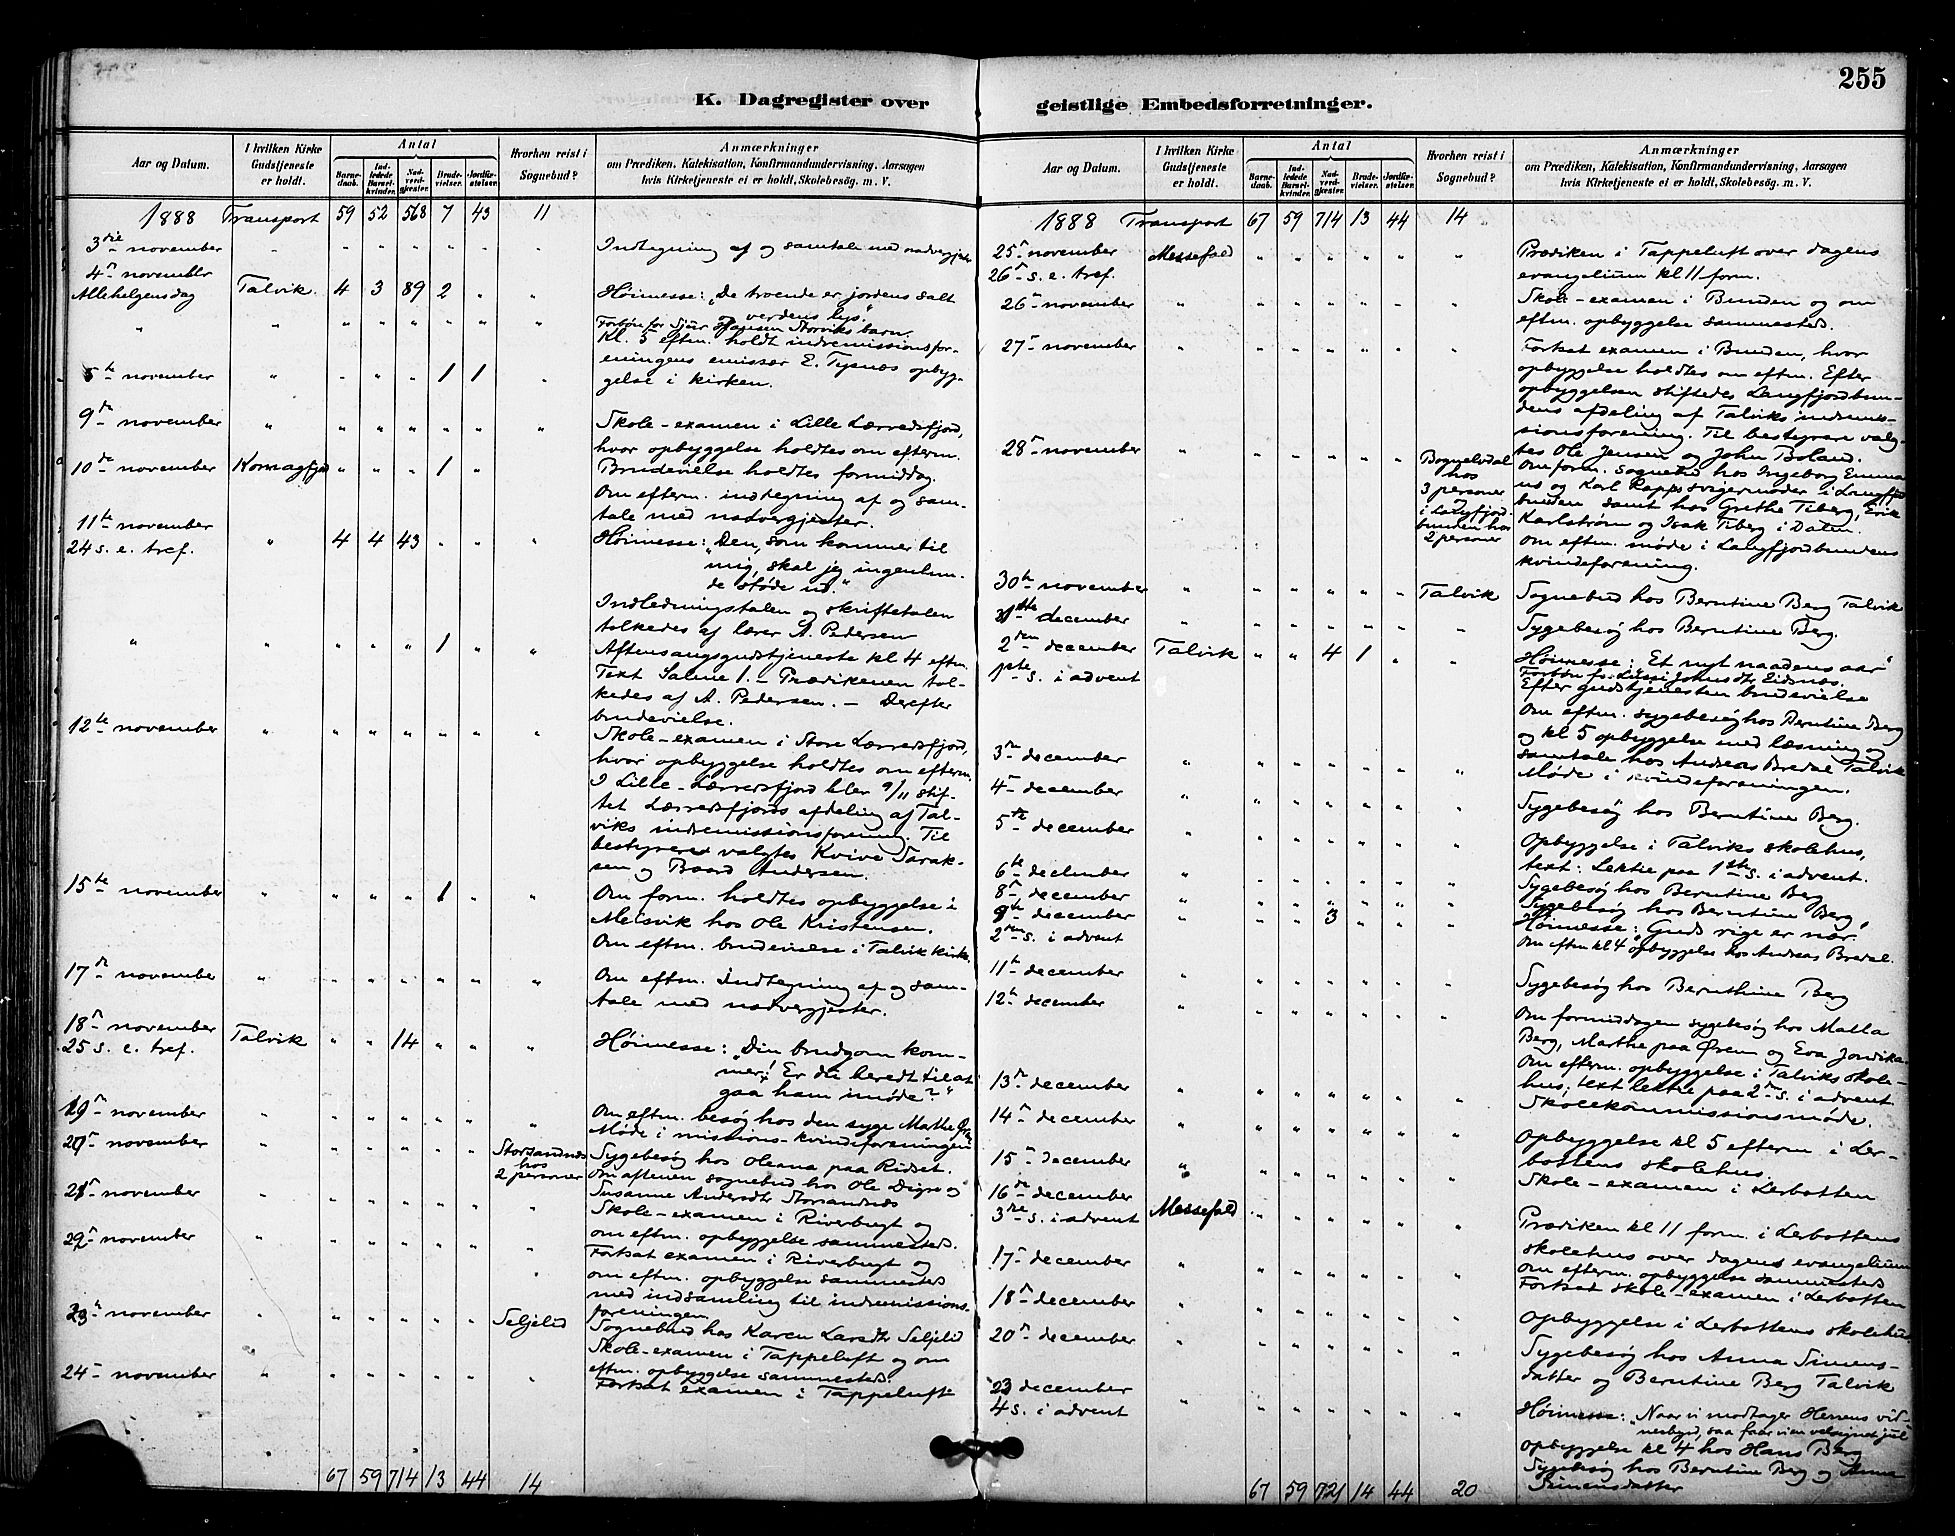 255
K. Dagregister over
geistlige Embedsforretninger.
Aar og Datum.
I hvilken Kirke Gudstjeneste er holdt.
Antal
Barnedaab.
Indledede Barselkvinder.
Nadvergjester.
Brudevielser.
Jordfæstelser.
Hvorhen reist i Sognebud?
Anmærkninger
om Prædiken, Katekisation, Konfirmandundervisning, Aarsagen
hvis Kirketjeneste ei er holdt, Skolebesög. m. V.
1888 Transport 59 52 568 7 43 11
3die november " " " " " " " Indtegning af og samtale med nadvergjester
4de november
Allehelgensdag Talvik 4 3 89 2 " " Høimesse: "De troende er jordens salt
og verdens lys."
" " " " " " " " Forbøn for Sjur Hansen Storviks barn.
Kl. 5 eftm. holdt indremissionsfor-
eningens emissær E. Tysnæs opbyg-
5te november " " " " 1 1 " gelse i kirken.
9de november " " " " " " " Skole-examen i Lille Lærredsfjord,
hvor opbyggelse holdtes om efterm.
10de november Komagfjord " " " 1 " Brudevielse holdtes formiddag.
Om efterm. indtegning af og sam-
tale med nadvergjester.
11te november
24 s. e. tref. " 4 4 43 " " " Høimesse: "Den, som kommer til
mig, skal jeg ingenlun-
de støde ud."
Indledningstalen og skriftetalen
tolkedes af lærer A. Pedersen
" " " " " 1 " " Aftensangsgudstjeneste kl 4 eftm.
Text Salme 1. – Prædikenen tol-
kedes af A. Pedersen. – Derefter
brudevielse.
12te november " " " " " " " Skole-examen i Store Lærredsfjord,
hvor opbyggelse holdtes om efterm.
I Lille-Lærredsfjord blev 9/11 stif-
tet Lærredsfjords afdeling af Tal-
viks indremissionsforening. Til
bestyrere valgtes Kvive Sarak-
sen og Baard Andersen.
15te november " " " " 1 " " Om form. holdtes opbyggelse i
Melsvik hos Ole Kristensen.
Om eftm. brudevielse i Talvik kirke.
17de november " " " " " " " Om eftm. Indtegning af og sam-
tale med nadvergjester.
18de november
25 s. e. tref. Talvik " " 14 " " " Høimesse: "Din brudgom kom-
mer! Er du beredt til at
gaa ham imøde?"
19de november " " " " " " " Om eftm. besøg hos den syge Marthe
Møde i missions-kvindeforeningen
20de november " " " " " " Storsandnes hos 2 personer Sygebesøg hos Oleana paa Ridset.
Om aftenen sognebud hos Ole Digre og
Susanne Andersdtr Storsandnes
21de november " " " " " " " Skole-examen i Riverbugt og
om eftm. opbyggelse sammesteds.
22de november " " " " " " " Fortsat examen i Riverbugt og
om eftm. opbyggelse sammesteds
med indsamling til indremissions-
foreningen.
23de november " " " " " " Seljelid Sognebud hos Karen Larsdtr Seljelid
Skole-examen i Tappeluft og om
eftm. opbyggelse sammesteds.
24– november " " " " " " " Fortsat examen i Tappeluft
67 59 714 13 44 14
Aar og Datum.
I hvilken Kirke Gudstjeneste er holdt.
Antal
Barnedaab.
Indledede Barselkvinder.
Nadvergjester.
Brudevielser.
Jordfæstelser.
Hvorhen reist i Sognebud?
Anmærkninger
om Prædiken, Katekisation, Konfirmandundervisning, Aarsagen
hvis Kirketjeneste ei er holdt, Skolebesög. m. V.
1888 Transport 67 59 714 13 44 14
25de november Messefald " " " " " " Prædiken i Tappeluft over dagens
26de s. e. tref. evangelium kl 11 form.
26– november " " " " " " " Skole-examen i Bunden og om
eftm. opbyggelse sammesteds.
27– november " " " " " " " Fortsat examen i Bunden, hvor
opbyggelse holdtes om eftm. Efter
opbyggelsen stiftedes Langfjordbun-
dens afdeling af Talviks indremis-
sionsforening. Til bestyrere valg-
tes Ole Jensen og John Boland.
28de november " " " " " " Bognelvdal hos 3 personer og i Langfjordbunden hos 2 personer Om form. sognebud hos Ingeborg
og Karl Rapps svigermoder i Langfjord
bunden samt hos Grethe Tiberg, Erik
Karlstrøm og Isak Tiberg i Dalen.
Om eftm. møde i Langfjordbundens
kvindeforening.
30te november " " " " " " Talvik Sognebud hos Berntine Berg Talvik
1ste december " " " " " " " Sygebesøg hos Berntine Berg.
2den december Talvik " " 4 1 " " Høimesse: "Et nyt naadens aar"
1ste s. i advent Forbøn for Lussi Johnsdtr Eidsnæs.
Efter gudstjenesten brudevielse
Om eftm. sygebesøg hos Berntine Berg
og kl 5 opbyggelse med læsning og
samtale hos Andreas Bredal Talvik
3de december " " " " " " " Møde i kvindeforeningen.
4– december " " " " " " " Sygebesøg hos Berntine Berg.
5te december " " " " " " " Opbyggelse i Talviks skolehus,
text: Lektie paa 1ste s. i advent.
6te december " " " " " " " Sygebesøg hos Berntine Berg
8de december " " " " " " " Sygebesøg hos Berntine Berg
9de december " " " 3 " " " Høimesse: "Guds rige er nær."
2den s. i advent Om eftm kl 4 opbyggelse hos Andreas Bredal.
11te december " " " " " " " Sygebesøg hos Bernthine Berg
12te december " " " " " " " Om formiddagen sygebesøg hos Malla
Berg, Marthe paa Øren og Eva
Om efterm. opbyggelse i Talviks skole-
hus, text lektie paa 2den s. i advent
13de december " " " " " " " Skolekommissionsmøde.
14de december " " " " " " " Opbyggelse kl 5 efterm i Ler-
bottens skolehus.
15– december " " " " " " " Skole-examen i Lerbotten
16de december
3die s. i advent Messefald " " " " " " Prædiken kl 11 form. i Lerbottens
skolehus over dagens evangelium
Om efterm. opbyggelse sammesteds
17– december " " " " " " " Fortsat skole-examen i Lerbotten
18de december " " " " " " " Opbyggelse i Lerbottens skolehus
20de december " " " " " " " Sygebesøg hos Anna Simens-
datter og Berntine Berg Talvik
23 december
4 s. i advent " " " " " " " Høimesse: "Naar vi modtager Herrens vid-
nesbyrd, saa faar vi en velsignet jul"
Opbyggelse kl 4 hos Hans Berg
Sygebesøg hos Berntine Berg og Anna
Simensdatter
67 59 721 14 44 20